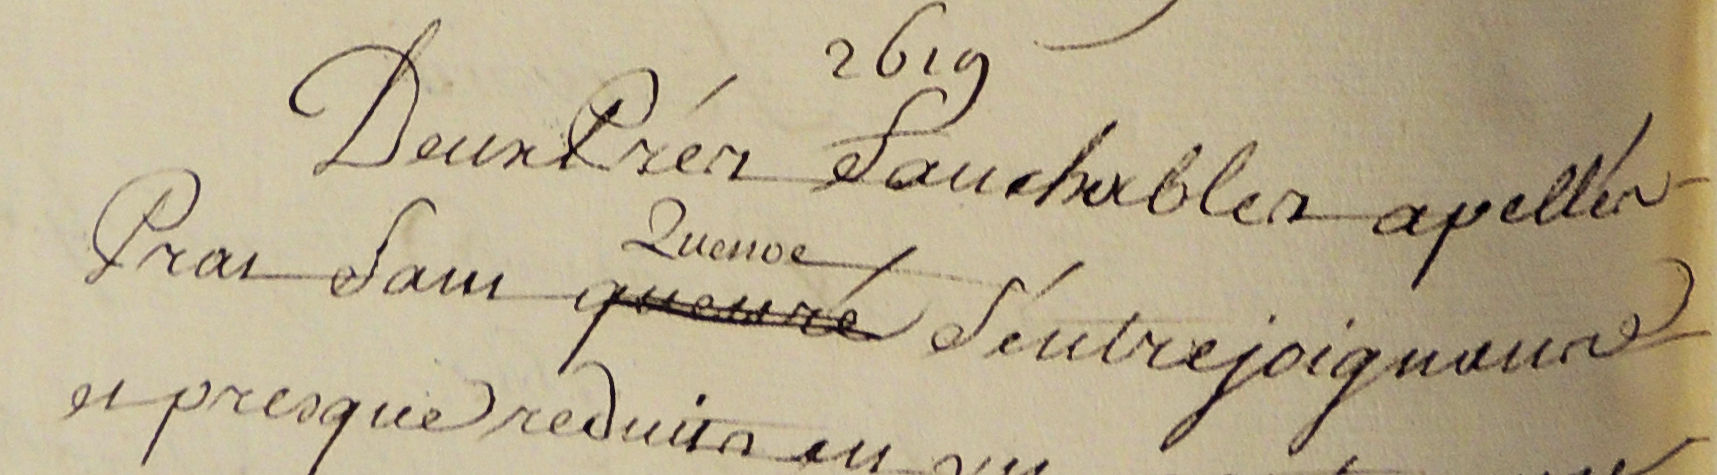 2619
Deux Prés Fauchables apellés
Pras Sans Quenoe
queuré S'entrejoignans
et presque reduits en un